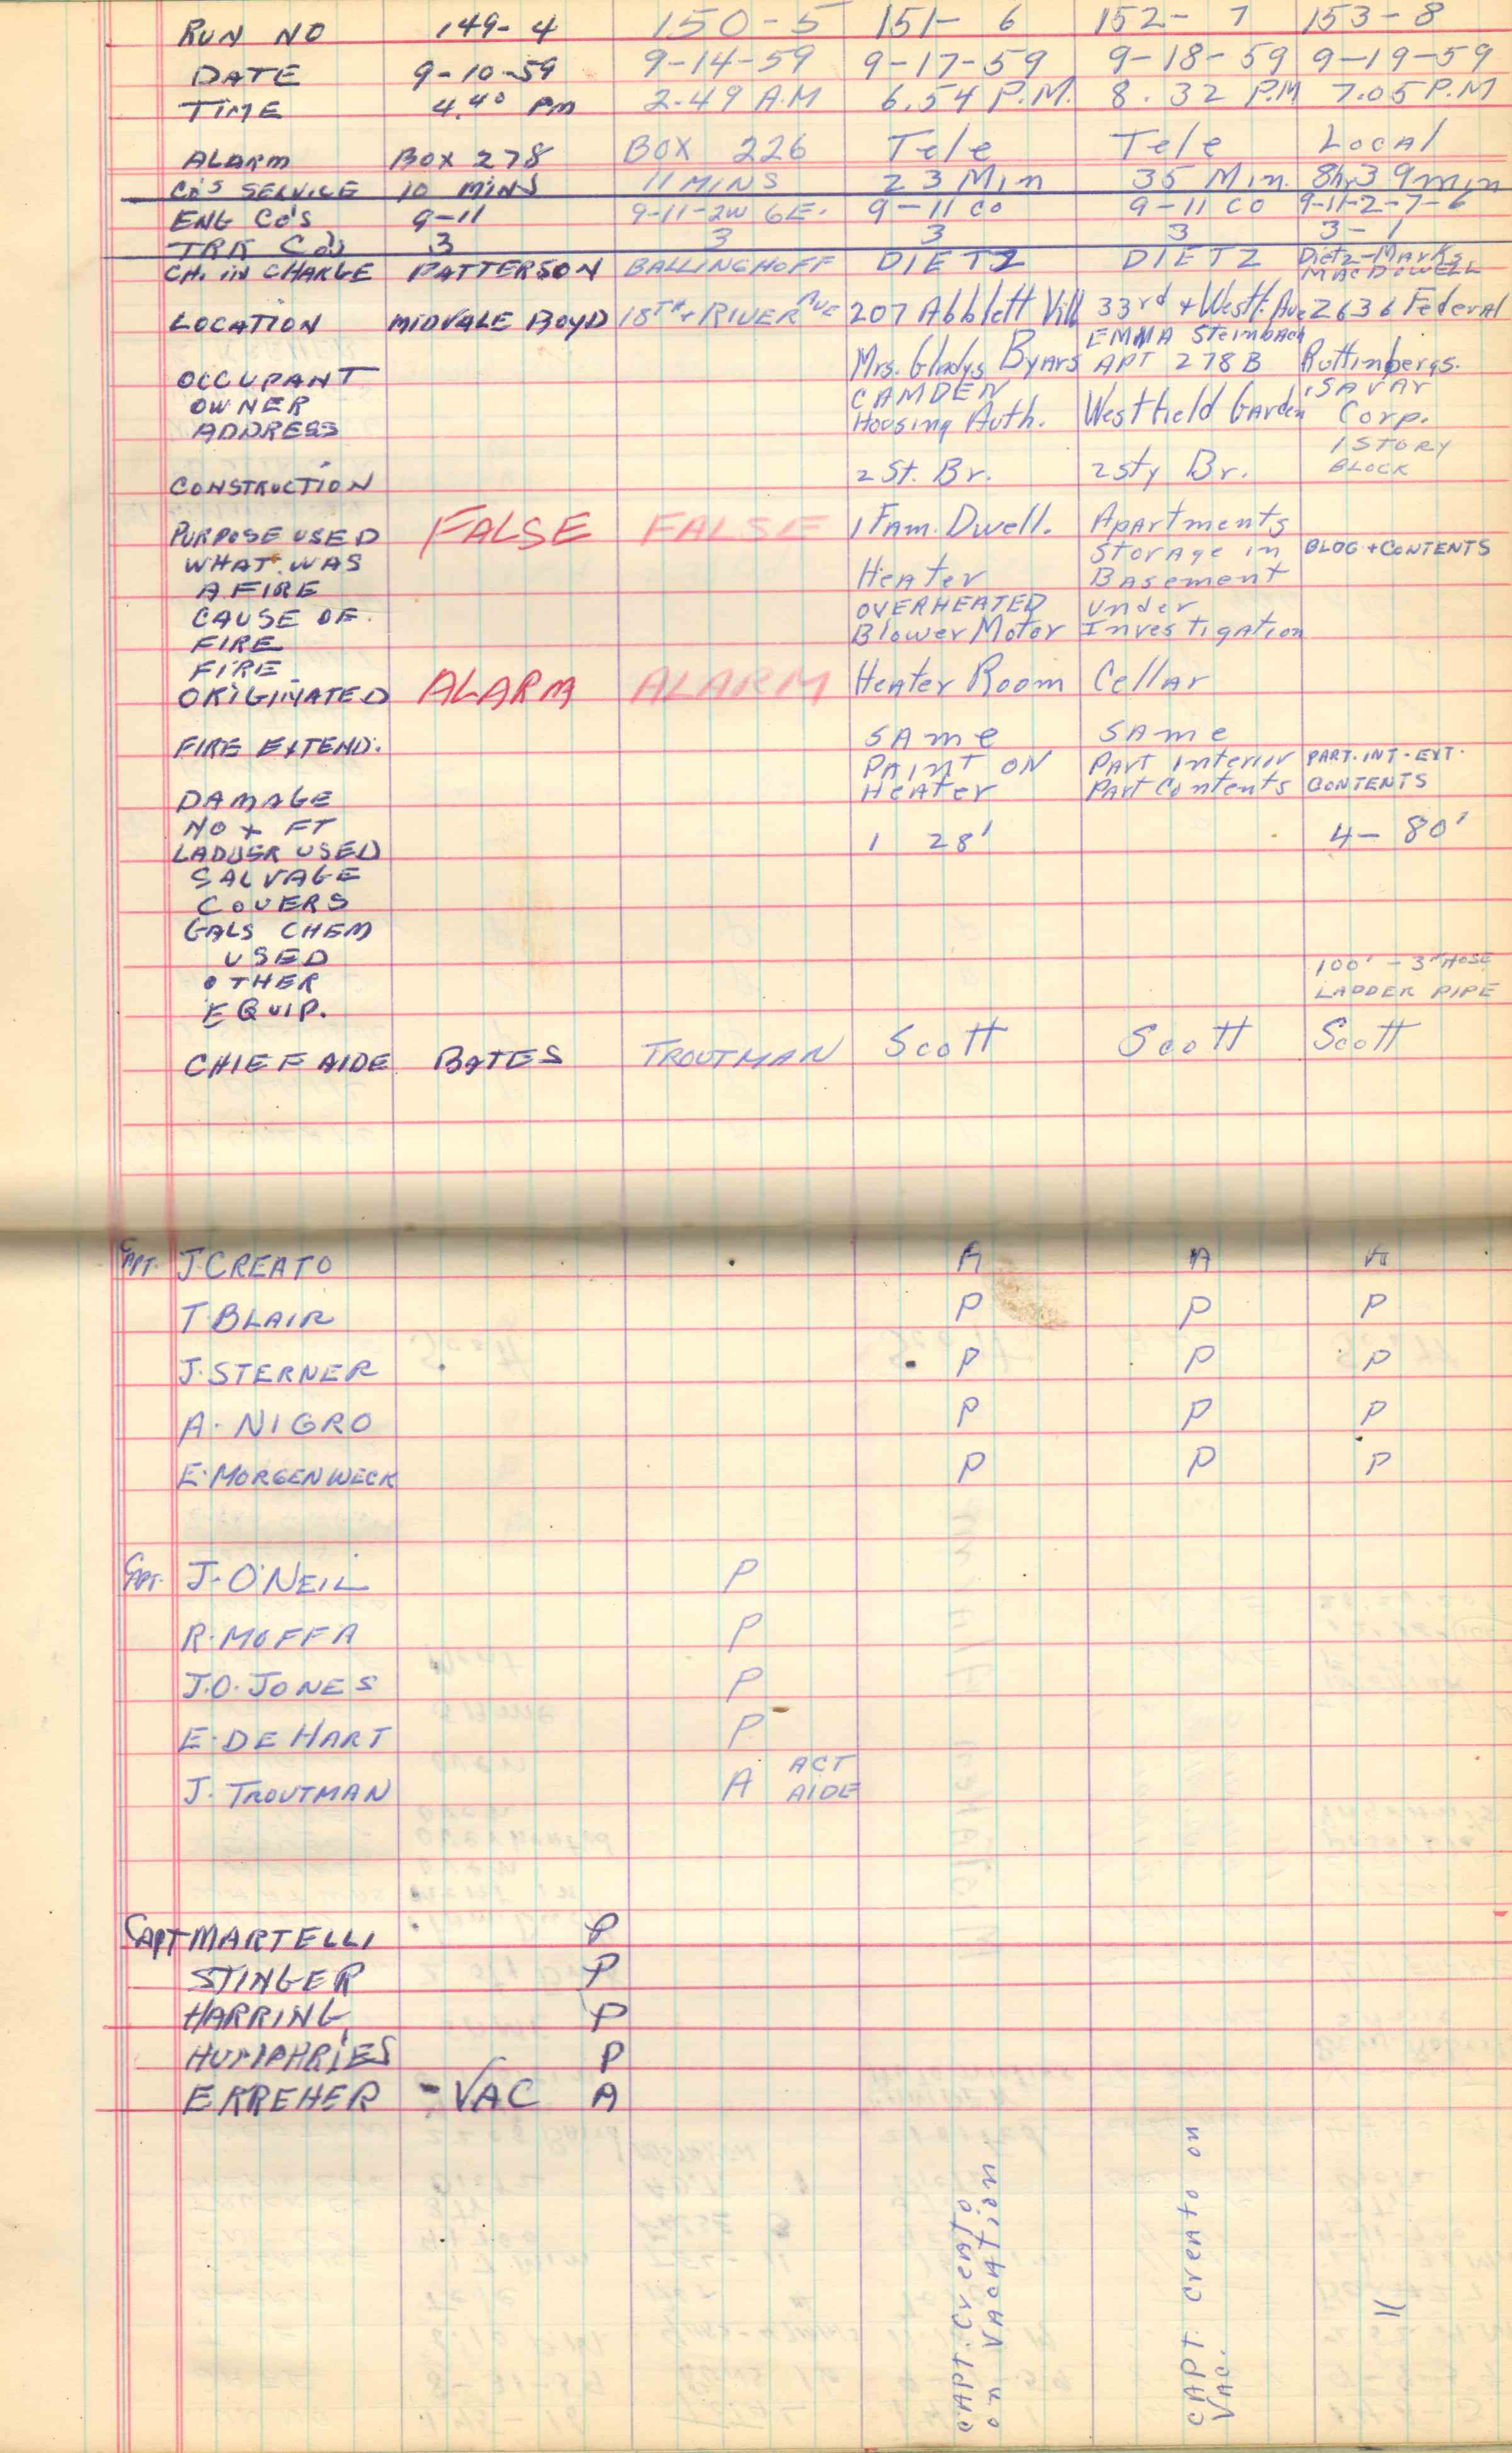 RUN NO 149-4 150-5 151- 6 152- 7 153-8
DATE 9-10-59 9-14-59 9-17-59 9-18-59 9-19-59
TIME 4.40 PM 2.49 A.M 6.54 P.M. 8.32 P.M 7.05 P.M
ALARM BOX 278 BOX 226 Tele Tele Local
CO'S SERVICE 10 MINS 11 MINS 23 Min 35 Min. 8hr 39min
ENG CO'S 9-11 9-11-2W 6E. 9-11 CO 9-11 CO 9-11-2-7-6
TRK CO'S 3 3 3 3 3-1
CH. IN CHARGE PATTERSON BALLINGHOFF DIETZ DIETZ Dietz-Marks
MACDOWELL
LOCATION MIDVALE BOYD 18TH + RIVER AVE 207 Abblett Vill 33rd + Westf. Ave 2636 Federal
EMMA Steinbach
OCCUPANT Mrs. Gladys Byars APT 278B Ruttinbergs.
OWNER CAMDEN SAVAR
ADDRESS Housing Auth. Westfield Garden Corp.
1 STORY
CONSTRUCTION 2 St. Br. 2 sty Br. BLOCK
PURPOSE USED FALSE FALSE 1 Fam. Dwell. Apartments
WHAT WAS Storage in BLOG + CONTENTS
A FIRE Heater Basement
CAUSE OF. OVERHEATED under
FIRE Blower Motor Investigation
FIRE
ORIGINATED ALARM ALARM Heater Room Cellar
FIRE EXTEND. SAme SAme
PAINT ON Part Interior PART. INT - EXT.
DAMAGE HEATER Part Contents CONTENTS
NO + FT
LADDER USED 1 28' 4- 80'
SALVAGE
COVERS
GALS CHEM
USED
OTHER 100' - 3" HOSE
EQUIP. LADDER PIPE
CHIEF AIDE BATES TROUTMAN Scott Scott Scott
CAPT. J. CREATO A A
T BLAIR P P P
J. STERNER P P P
A. NIGRO P P P
E. MORGENWECK P P P
CAPT. J. O'NEIL P
R. MOFFA P
J.O. JONES P
E. DE HART P
J. TROUTMAN A ACT
AIDE
CAPT MARTELLI P
STINGER P
HARRING P
HUMPHRIES P
E KREHER - VAC A
CAPT. Creato
on VACATION
CAPT. Creato on
VAC.
"